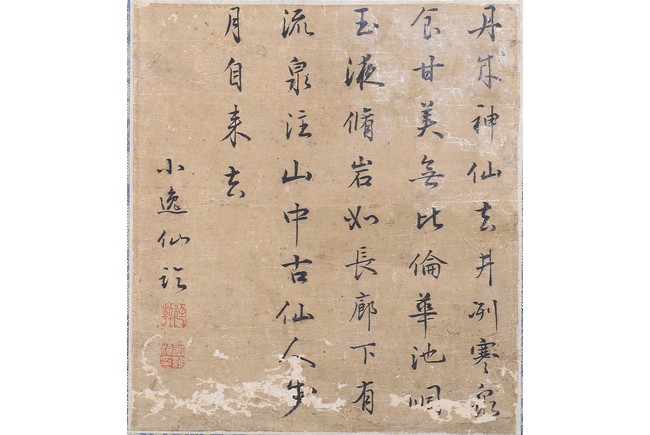 丹成神仙去井冽寒泉
食甘美無比倫華池咽
玉液脩岩如長廊下有
流泉注山中古仙人步
月自来去
小逸仙